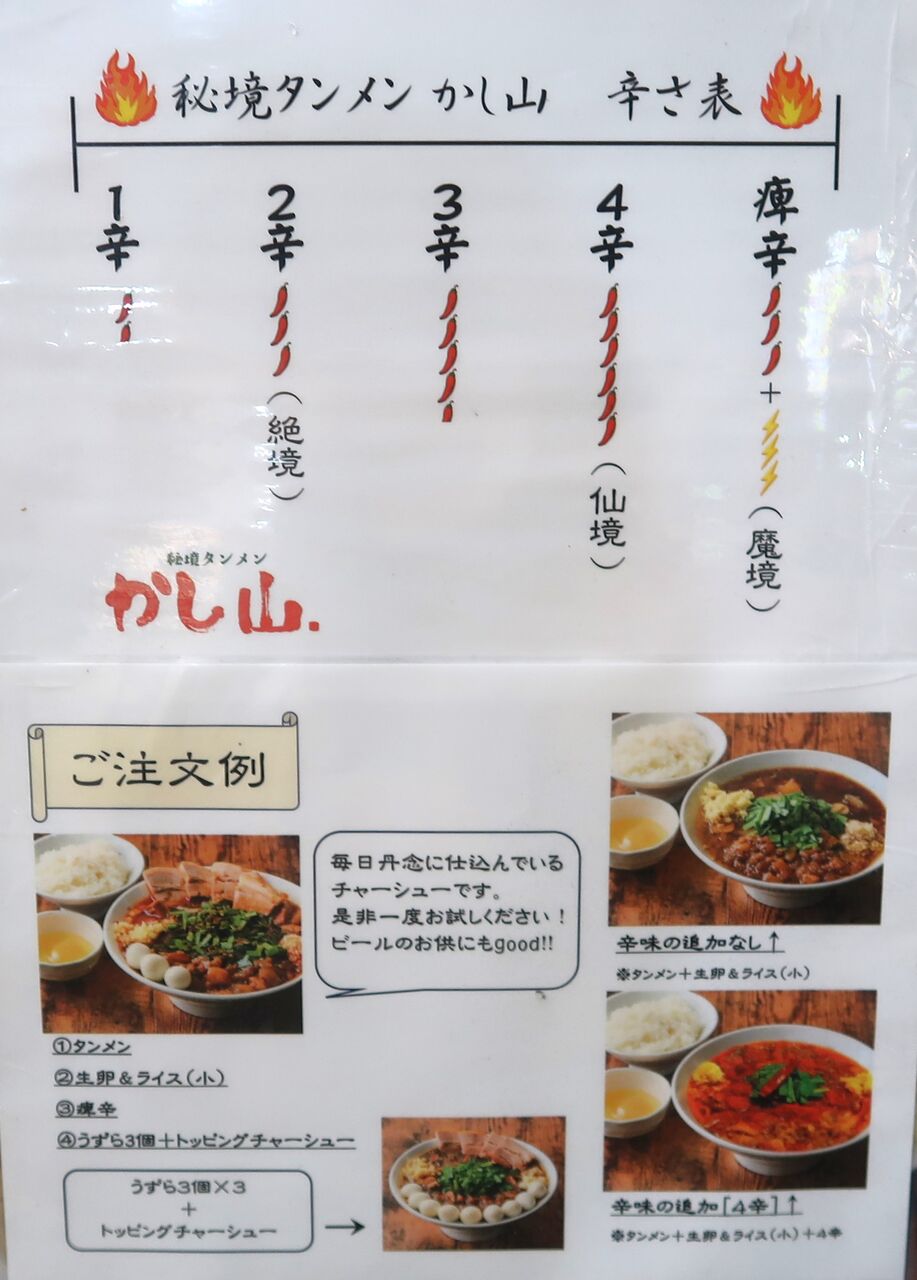 秘境タンメン かし山 辛さ表
1辛
2辛
(絶境)
3辛
4辛
(仙境)
痺辛
+
(魔境)
秘境タンメン
かし山.
ご注文例
毎日丹念に仕込んでいる
チャーシューです。
是非一度お試しください!
ビールのお供にもgood!!
①タンメン
②生卵&ライス(小)
③痺辛
④うずら3個+トッピングチャーシュー
うずら3個×3
+
トッピングチャーシュー
→
辛味の追加なし↑
※タンメン+生卵&ライス(小)
辛味の追加[4辛]↑
※タンメン+生卵&ライス(小)+4辛